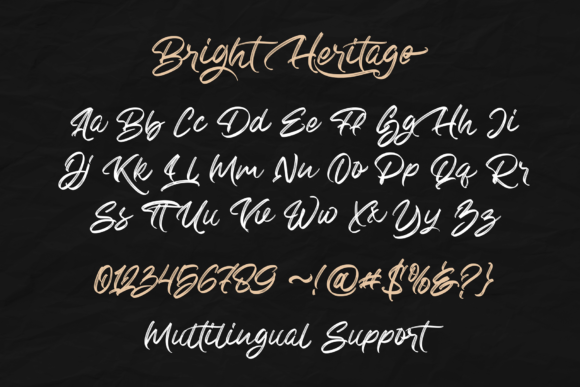 Bright Heritage
Aa Bb Cc Dd Ee Ff Gg Hh Ii
Jj Kk Ll Mm Nn Oo Pp Qq Rr
Ss Tt Uu Vv Ww Xx Yy Zz
0123456789 ~!@#$%&?}
Multilingual Support